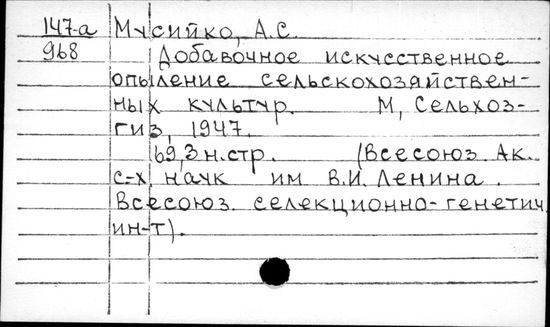 147-а Мусийко, А.С.
968 Добавочное искусственное
опыление сельскохозяйствен-
ных культур. М, Сельхоз-
гиз, 1947.
69,3 н.стр. (Всесоюз. Ак.
с-х. наук им В.И. Ленина.
Всесоюз. селекционно-генетич.
ин-т).